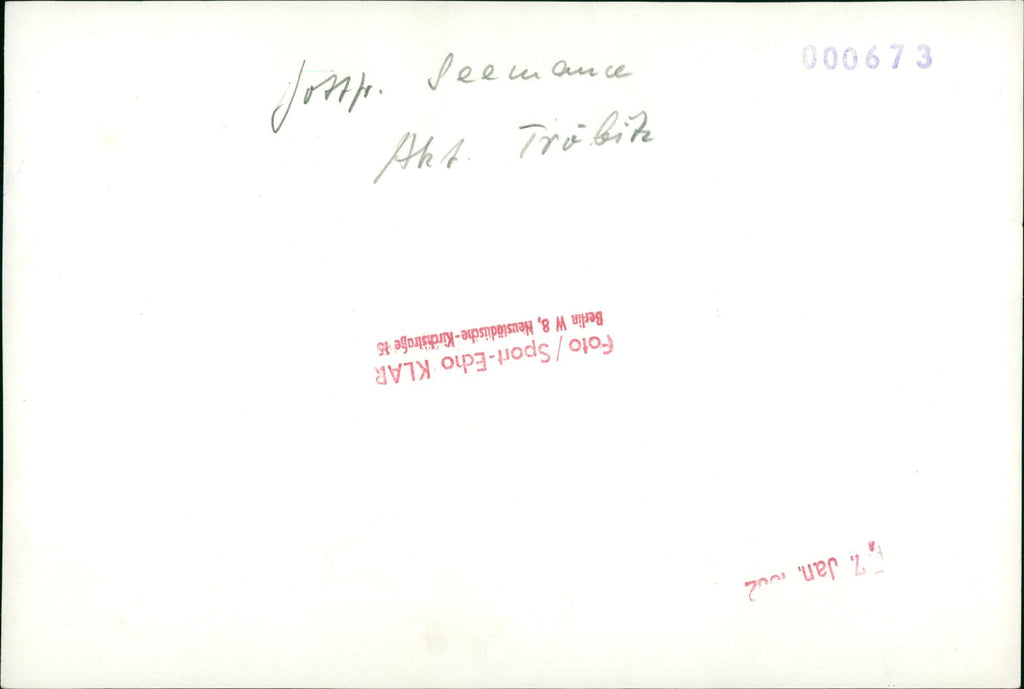 000673
Gottfr. Seemann
Akt. Tröbitz
Foto/Sport-Echo KLAR
Berlin W 8, Neustädtische-Kirchstraße 15
7. Jan.